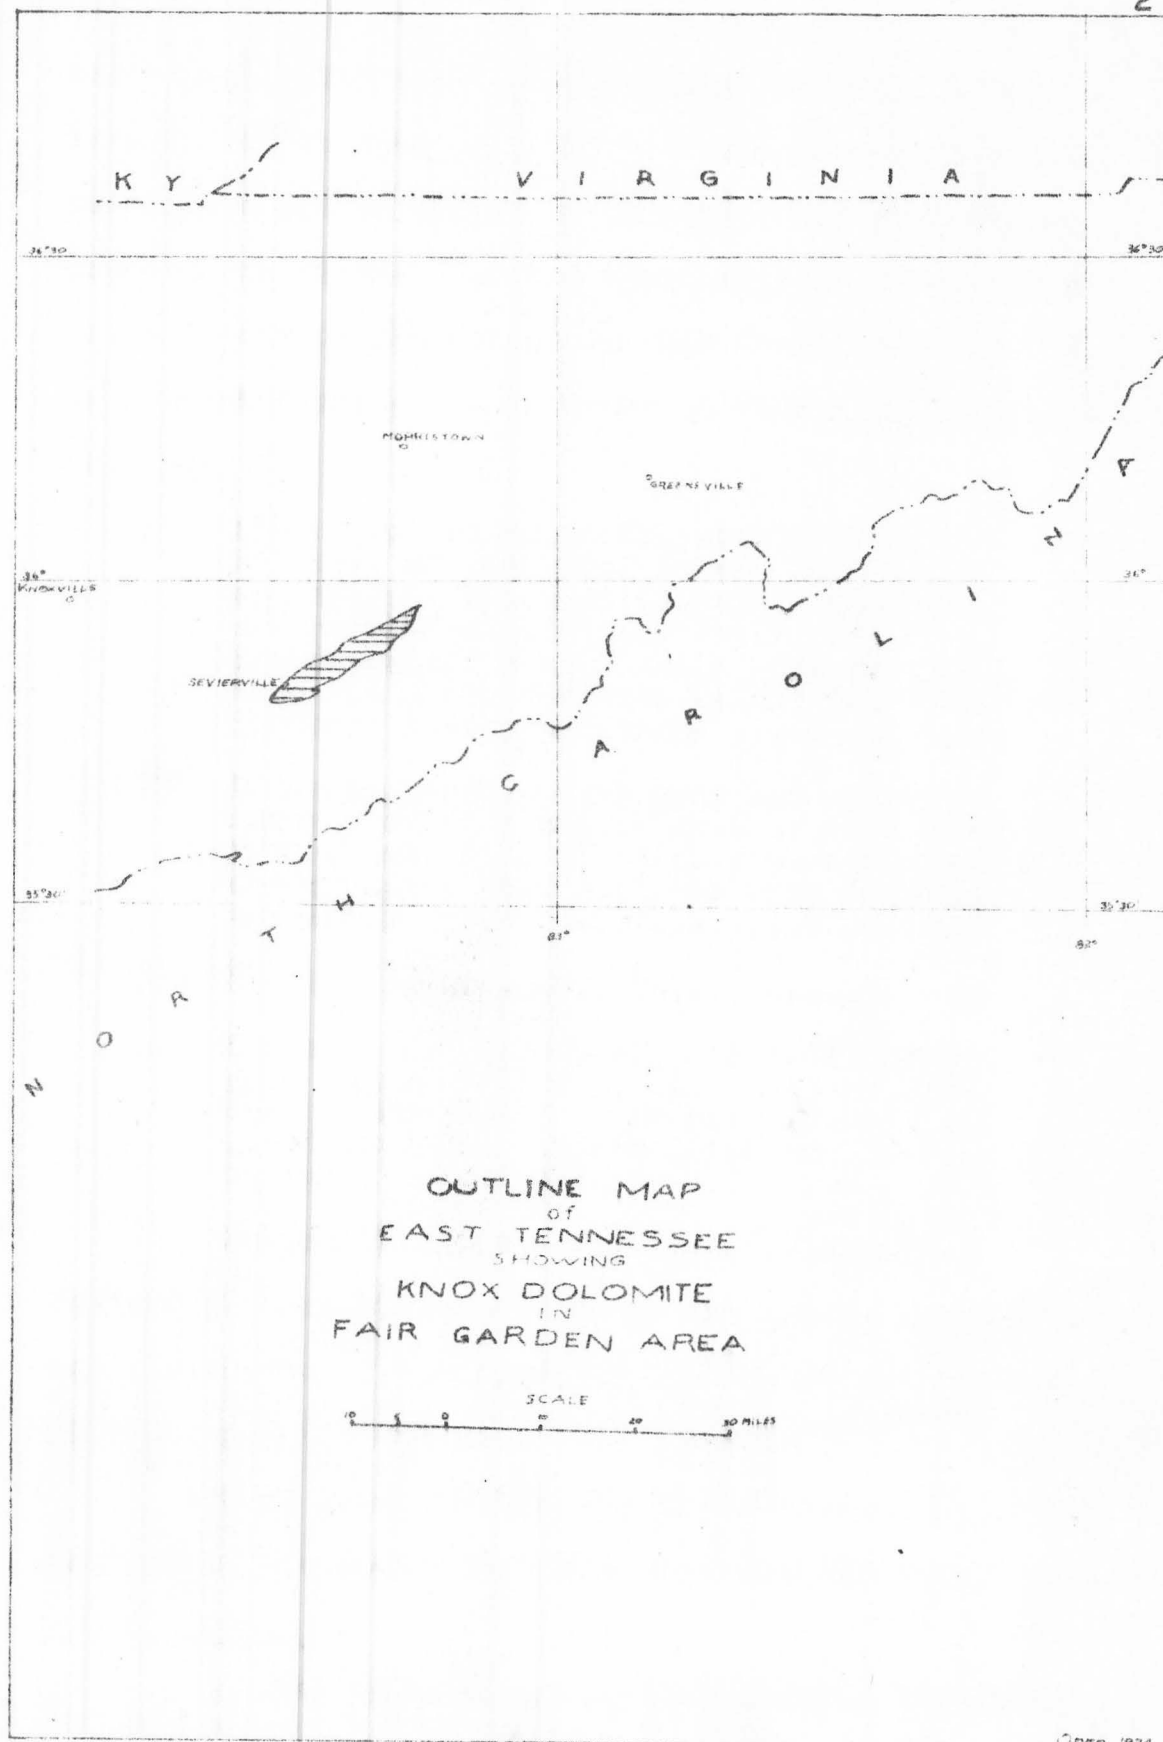 2
K Y
V I R G I N I A
36°30
36°30
MORRISTOWN
GREENEVILLE
36°
36°
KNOXVILLE
SEVIERVILLE
35°30'
35°30'
83°
82°
N O R T H C A R O L I N A
OUTLINE MAP
of
EAST TENNESSEE
SHOWING
KNOX DOLOMITE
IN
FAIR GARDEN AREA
SCALE
10 5 0 10 20 30 MILES